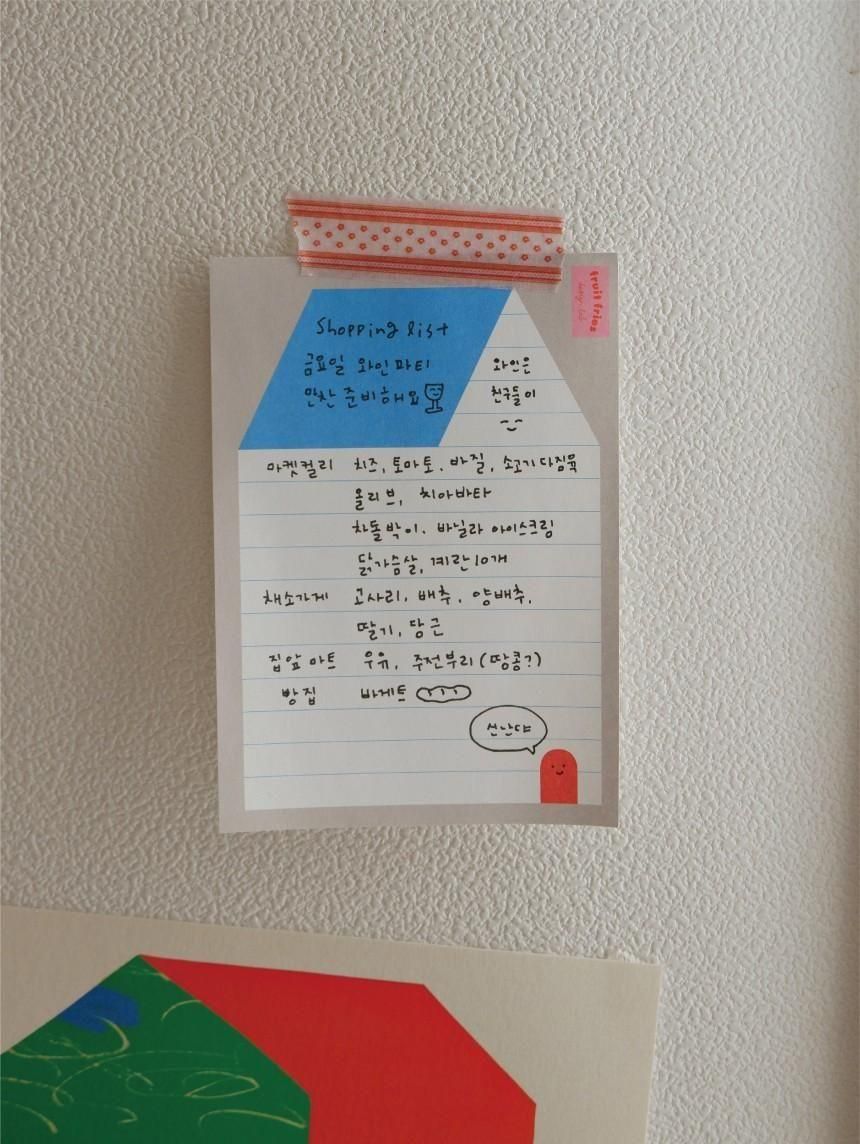 fruit fries
design lab
Shopping list
금요일 와인파티
만찬 준비해요
와인은
친구들이
마켓컬리 치즈, 토마토, 바질, 소고기다짐육
올리브, 치아바타
차돌박이, 바닐라 아이스크림
닭가슴살, 계란 10개
채소가게 고사리, 배추, 양배추,
딸기, 당근
집앞 마트 우유, 주전부리 (땅콩?)
빵집 바게트
신난다